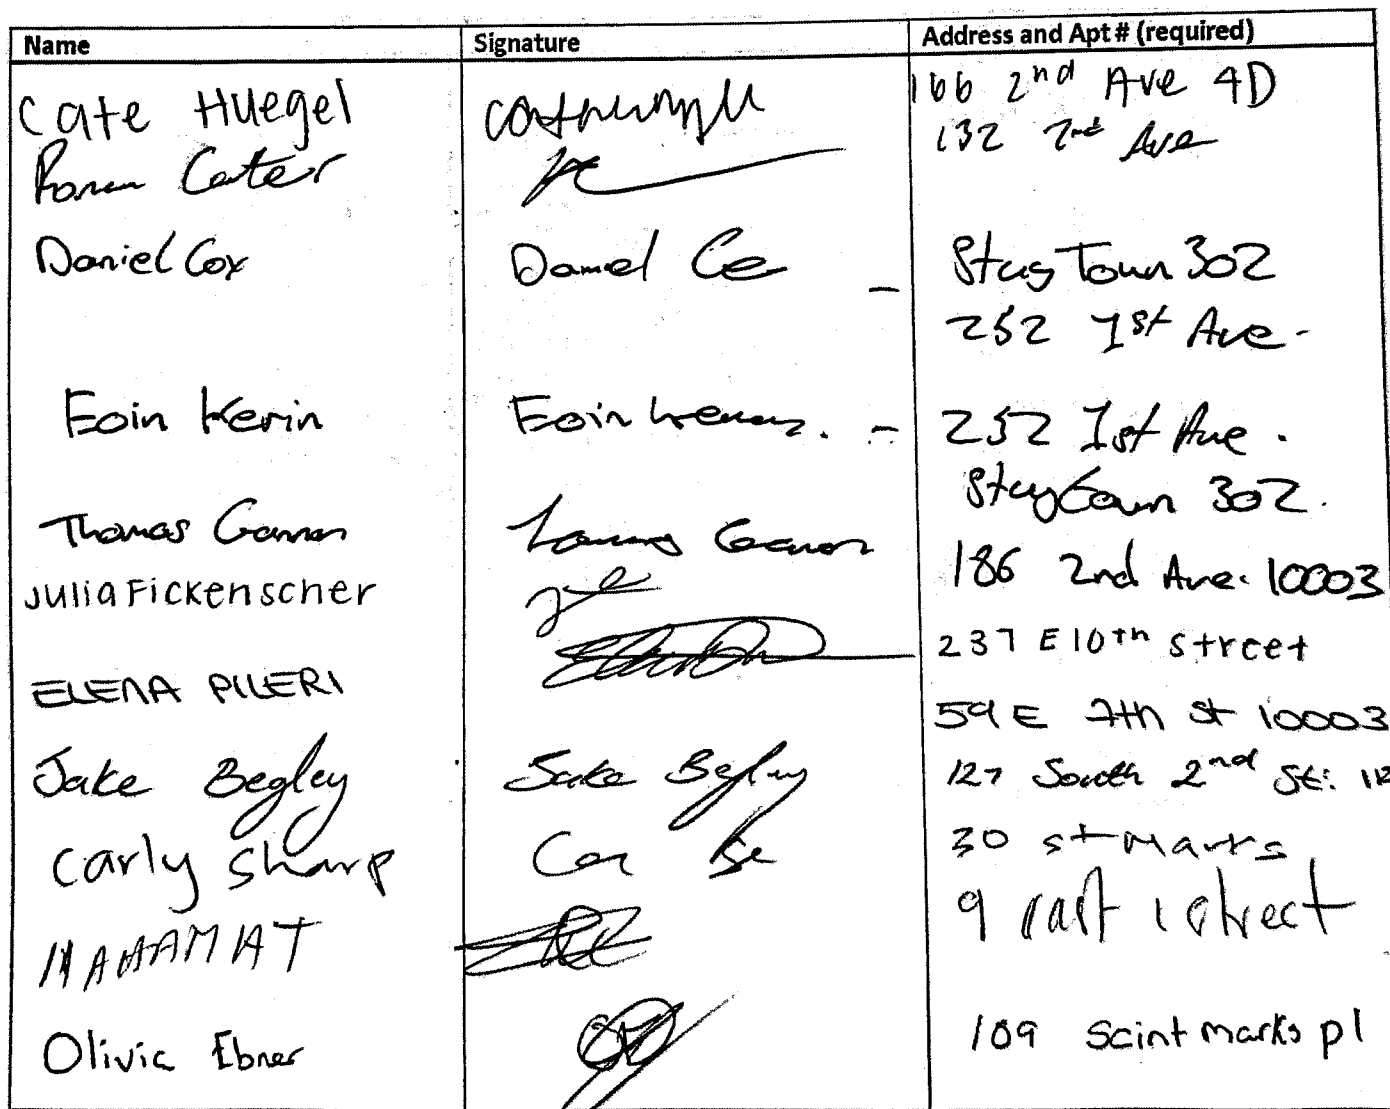 Name Signature Address and Apt # (required)
Cate Huegel 166 2nd Ave 4D
Ronan Carter 132 2nd Ave
Daniel Cox Daniel Co - Stuy Town 302
252 1st Ave.
Eoin Kerin Eoin Kerin. - 252 1st Ave.
Stuytown 302.
Thomas Gannon Gannon 186 2nd Ave. 10003
Julia Fickenscher 237 E 10th street
ELENA PILERI 59 E 7th St 10003
Jake Begley Jake Begley 127 South 2nd St.
Carly Sharp 30 st Marks
MAHAMAT 9 east 1 street
Olivia Ebner 109 Saint Marks pl